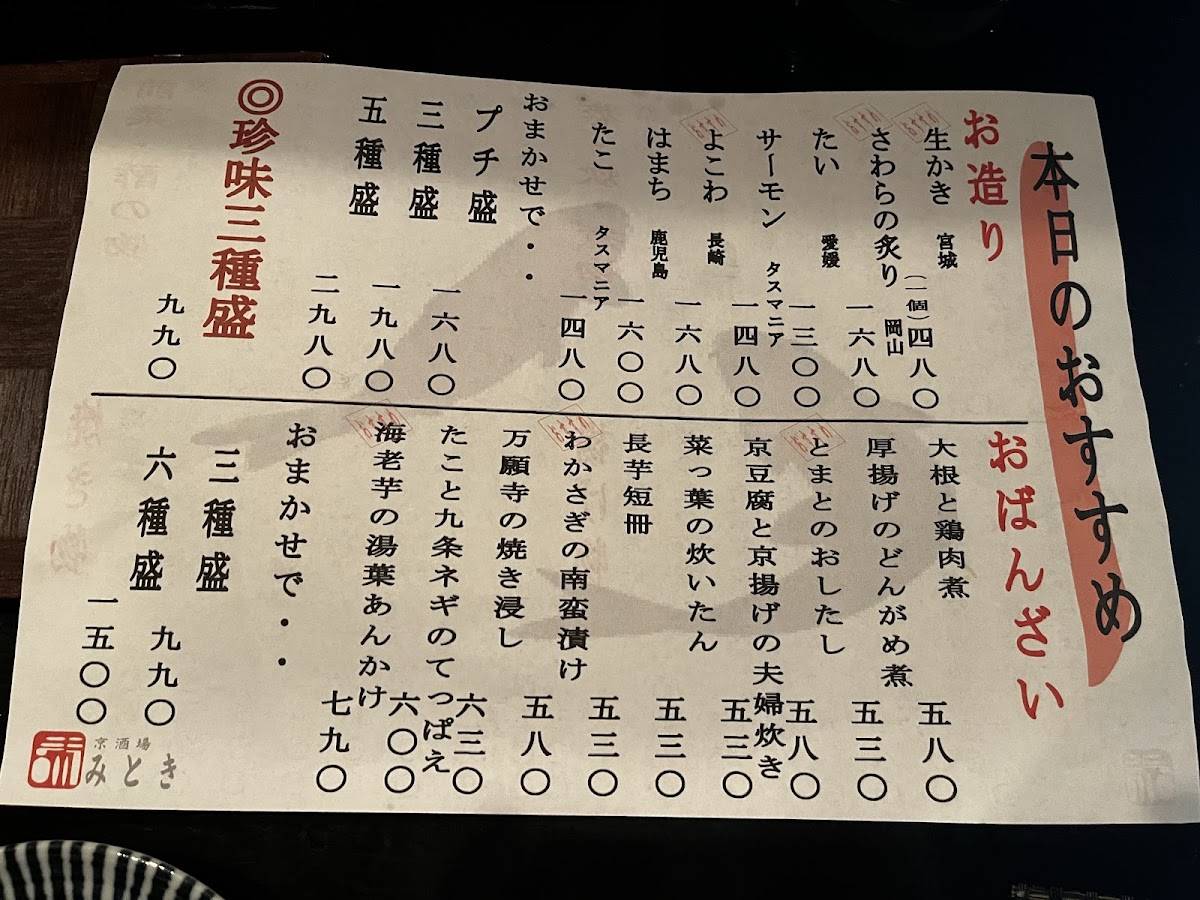 本日のおすすめ
お造り
おすすめ
生かき 宮城 (一個)四八〇
おすすめ
さわらの炙り 岡山 一六八〇
たい 愛媛 一三〇〇
サーモン タスマニア 一四八〇
おすすめ
よこわ 長崎 一六八〇
はまち 鹿児島 一六〇〇
たこ タスマニア 一四八〇
おまかせで・・
プチ盛 一六八〇
三種盛 一九八〇
五種盛 二九八〇
◎珍味三種盛
九九〇
おばんざい
大根と鶏肉煮 五八〇
厚揚げのどんがめ煮 五三〇
おすすめ
とまとのおしたし 五八〇
京豆腐と京揚げの夫婦炊き 五三〇
菜っ葉の炊いたん 五三〇
長芋短冊 五三〇
おすすめ
わかさぎの南蛮漬け 五八〇
万願寺の焼き浸し 六三〇
たこと九条ネギのてっぱえ 六〇〇
おすすめ
海老芋の湯葉あんかけ 七九〇
おまかせで・・
三種盛 九九〇
六種盛 一五〇〇
京酒場
みとき